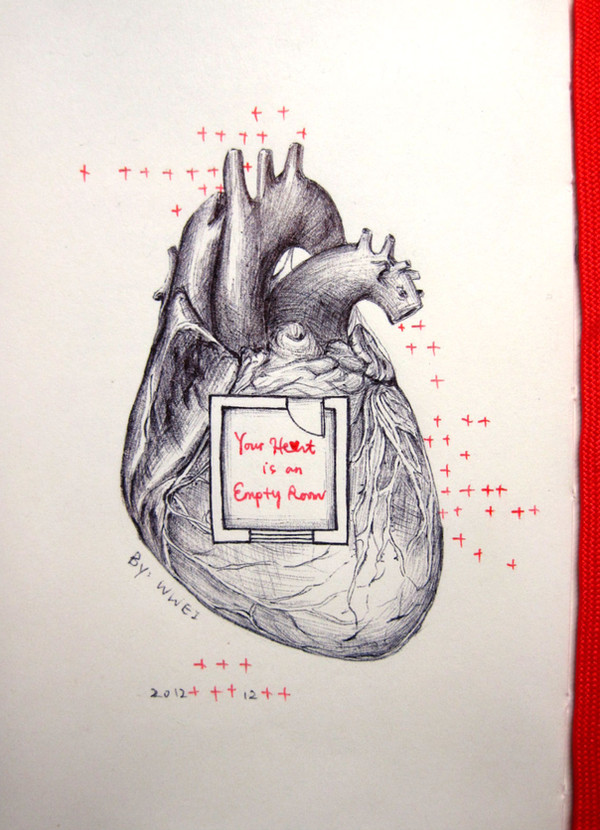 Your Heart
is an
Empty Room
By: WWEI
2012 12